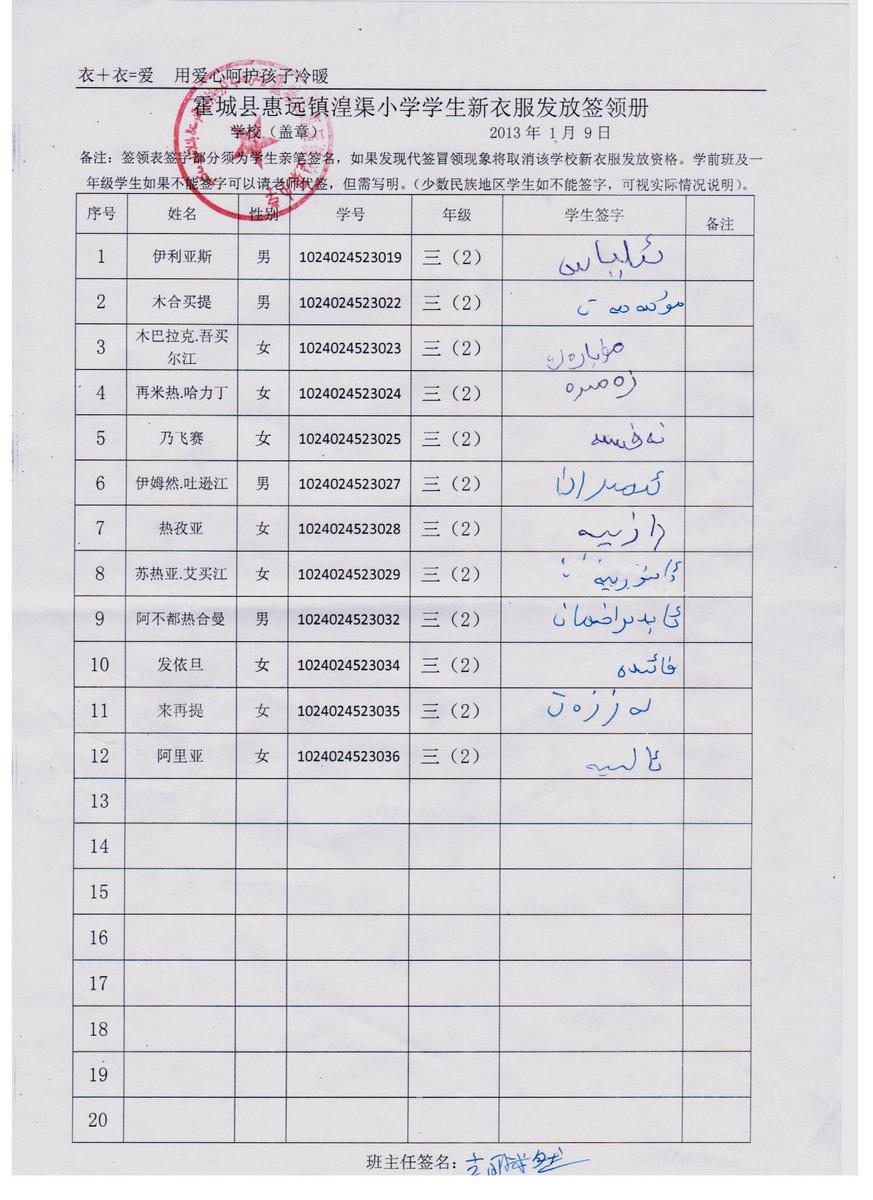 衣＋衣=爱 用爱心呵护孩子冷暖
霍城县惠远镇湟渠小学学生新衣服发放签领册
学校（盖章） 2013年1月9日
备注：签领表签字部分须为学生亲笔签名，如果发现代签冒领现象将取消该学校新衣服发放资格。学前班及一
年级学生如果不能签字可以请老师代签，但需写明。（少数民族地区学生如不能签字，可视实际情况说明）。
序号 姓名 性别 学号 年级 学生签字 备注
1 伊利亚斯 男 1024024523019 三（2） ئىلىياس
2 木合买提 男 1024024523022 三（2）
3 木巴拉克.吾买
尔江 女 1024024523023 三（2） مۇبارەك
4 再米热.哈力丁 女 1024024523024 三（2） زەمىرە
5 乃飞赛 女 1024024523025 三（2） نەفىسە
6 伊姆然.吐逊江 男 1024024523027 三（2） ئىمران
7 热孜亚 女 1024024523028 三（2） رازىيە
8 苏热亚.艾买江 女 1024024523029 三（2）
9 阿不都热合曼 男 1024024523032 三（2）
10 发依旦 女 1024024523034 三（2） فائىدە
11 来再提 女 1024024523035 三（2） لەززەت
12 阿里亚 女 1024024523036 三（2） ئالىيە
13
14
15
16
17
18
19
20
班主任签名：